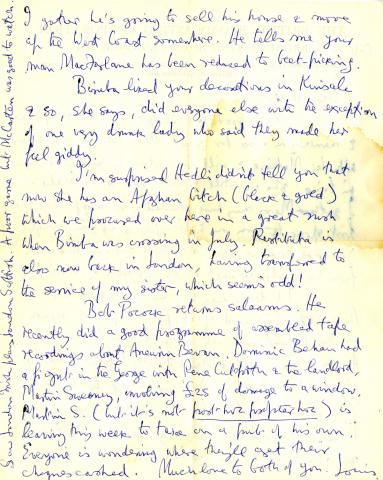 I gather he's going to sell his house & move
up the West Coast somewhere. He tells me your
man MacFarlane has been reduced to beet-picking.
Bimba liked your decorations in Kinsale
& so, she says, did everyone else with the exception
of one very drunk lady who said they made her
feel giddy.
I'm surprised Hedli didn't tell you that
now she has an Afghan bitch (black & gold)
which we procured over here in a great rush
when Bimba was crossing in July. is
also now back in London, having transferred to
the service of my sister, which seems odd!
Bob Pocock returns salaams. He
recently did a good programme of assembled tape
recordings about Aneurin Bevan. Dominic Behan had
a fight in the George with Rene Cutforth & the landlord,
Martin Sweeney, involving £25 of damage to a window.
Martin S. (but it's not post hoc propter hoc) is
leaving this week to take on a pub of his own.
Everyone is wondering where they'll get their
cheques cashed. Much love to both of you. Louis
Saw London Irish play London Scottish. A poor game but McCarten was good to watch.